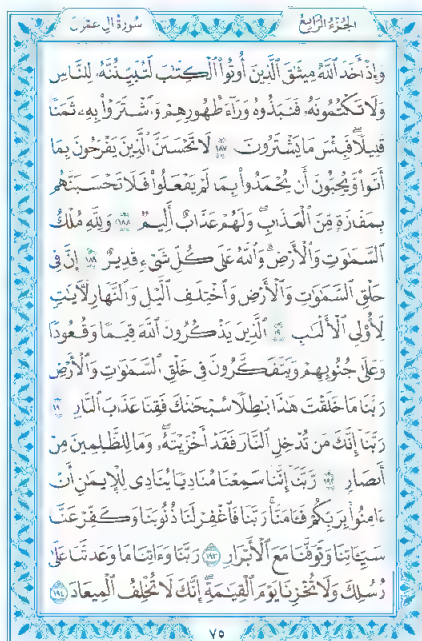 سُورَةُ آلِ عِمْرَانَ
الجُزْءُ الرَّابِعُ
وَإِذْ أَخَذَ ٱللَّهُ مِيثَٰقَ ٱلَّذِينَ أُوتُوا۟ ٱلْكِتَٰبَ لَتُبَيِّنُنَّهُۥ لِلنَّاسِ
وَلَا تَكْتُمُونَهُۥ فَنَبَذُوهُ وَرَآءَ ظُهُورِهِمْ وَٱشْتَرَوْا۟ بِهِۦ ثَمَنًا
قَلِيلًا ۖ فَبِئْسَ مَا يَشْتَرُونَ ١٨٧ لَا تَحْسَبَنَّ ٱلَّذِينَ يَفْرَحُونَ بِمَآ
أَتَوا۟ وَّيُحِبُّونَ أَن يُحْمَدُوا۟ بِمَا لَمْ يَفْعَلُوا۟ فَلَا تَحْسَبَنَّهُم
بِمَفَازَةٍ مِّنَ ٱلْعَذَابِ ۖ وَلَهُمْ عَذَابٌ أَلِيمٌ ١٨٨ وَلِلَّهِ مُلْكُ
ٱلسَّمَٰوَٰتِ وَٱلْأَرْضِ ۗ وَٱللَّهُ عَلَىٰ كُلِّ شَىْءٍ قَدِيرٌ ١٨٩ إِنَّ فِى
خَلْقِ ٱلسَّمَٰوَٰتِ وَٱلْأَرْضِ وَٱخْتِلَٰفِ ٱلَّيْلِ وَٱلنَّهَارِ لَـَٔايَٰتٍ
لِّأُو۟لِى ٱلْأَلْبَٰبِ ١٩٠ ٱلَّذِينَ يَذْكُرُونَ ٱللَّهَ قِيَٰمًا وَقُعُودًا
وَعَلَىٰ جُنُوبِهِمْ وَيَتَفَكَّرُونَ فِى خَلْقِ ٱلسَّمَٰوَٰتِ وَٱلْأَرْضِ
رَبَّنَا مَا خَلَقْتَ هَٰذَا بَٰطِلًا سُبْحَٰنَكَ فَقِنَا عَذَابَ ٱلنَّارِ ١٩١
رَبَّنَآ إِنَّكَ مَن تُدْخِلِ ٱلنَّارَ فَقَدْ أَخْزَيْتَهُۥ ۖ وَمَا لِلظَّٰلِمِينَ مِنْ
أَنصَارٍ ١٩٢ رَّبَّنَآ إِنَّنَا سَمِعْنَا مُنَادِيًا يُنَادِى لِلْإِيمَٰنِ أَنْ
ءَامِنُوا۟ بِرَبِّكُمْ فَـَٔامَنَّا ۚ رَبَّنَا فَٱغْفِرْ لَنَا ذُنُوبَنَا وَكَفِّرْ عَنَّا
سَيِّـَٔاتِنَا وَتَوَفَّنَا مَعَ ٱلْأَبْرَارِ ١٩٣ رَبَّنَا وَءَاتِنَا مَا وَعَدتَّنَا عَلَىٰ
رُسُلِكَ وَلَا تُخْزِنَا يَوْمَ ٱلْقِيَٰمَةِ ۗ إِنَّكَ لَا تُخْلِفُ ٱلْمِيعَادَ ١٩٤
٧٥